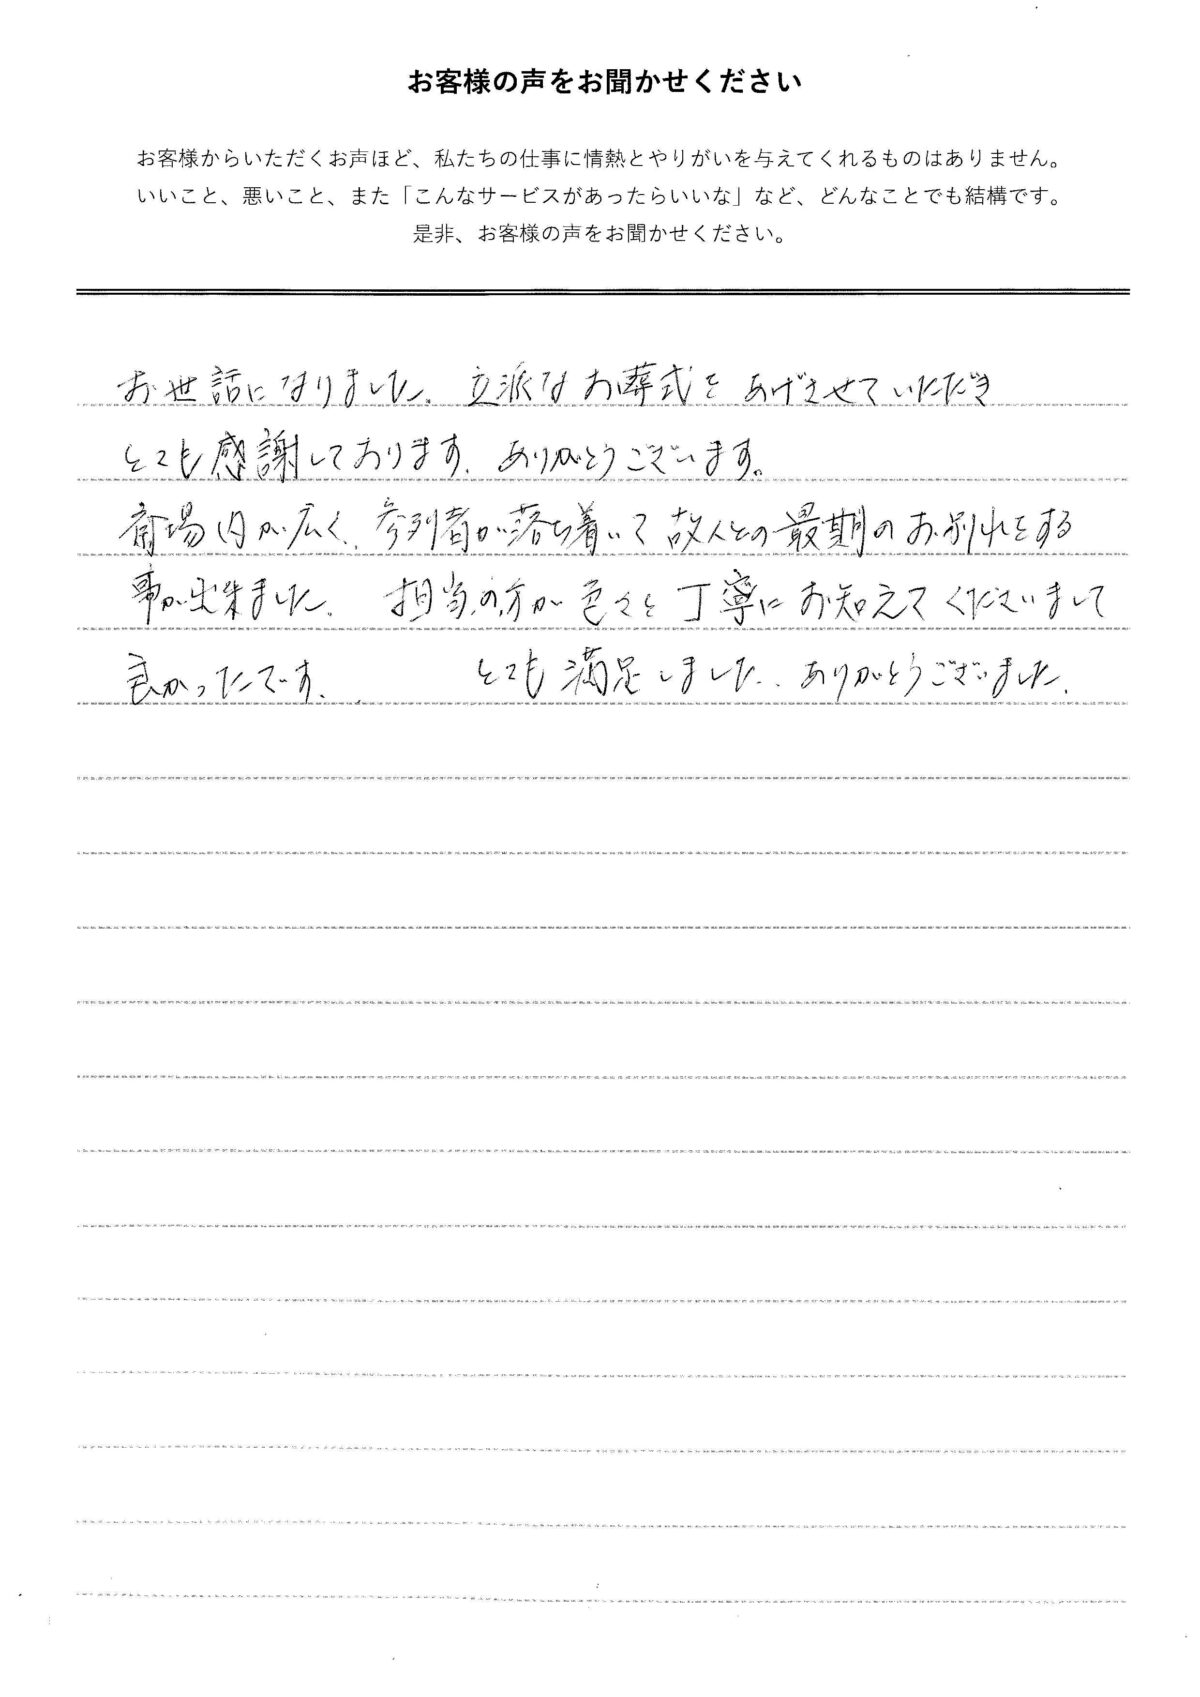 お客様の声をお聞かせください
お客様からいただくお声ほど、私たちの仕事に情熱とやりがいを与えてくれるものはありません。
いいこと、悪いこと、また「こんなサービスがあったらいいな」など、どんなことでも結構です。
是非、お客様の声をお聞かせください。
お世話になりました。立派なお葬式をあげさせていただき
とても感謝しております。ありがとうございます。
斎場内が広く、参列者が落ち着いて故人との最期のお別れをする
事が出来ました。 担当の方が色々と丁寧にお知えてくださいまして
良かったです。 とても満足しました。ありがとうございました。